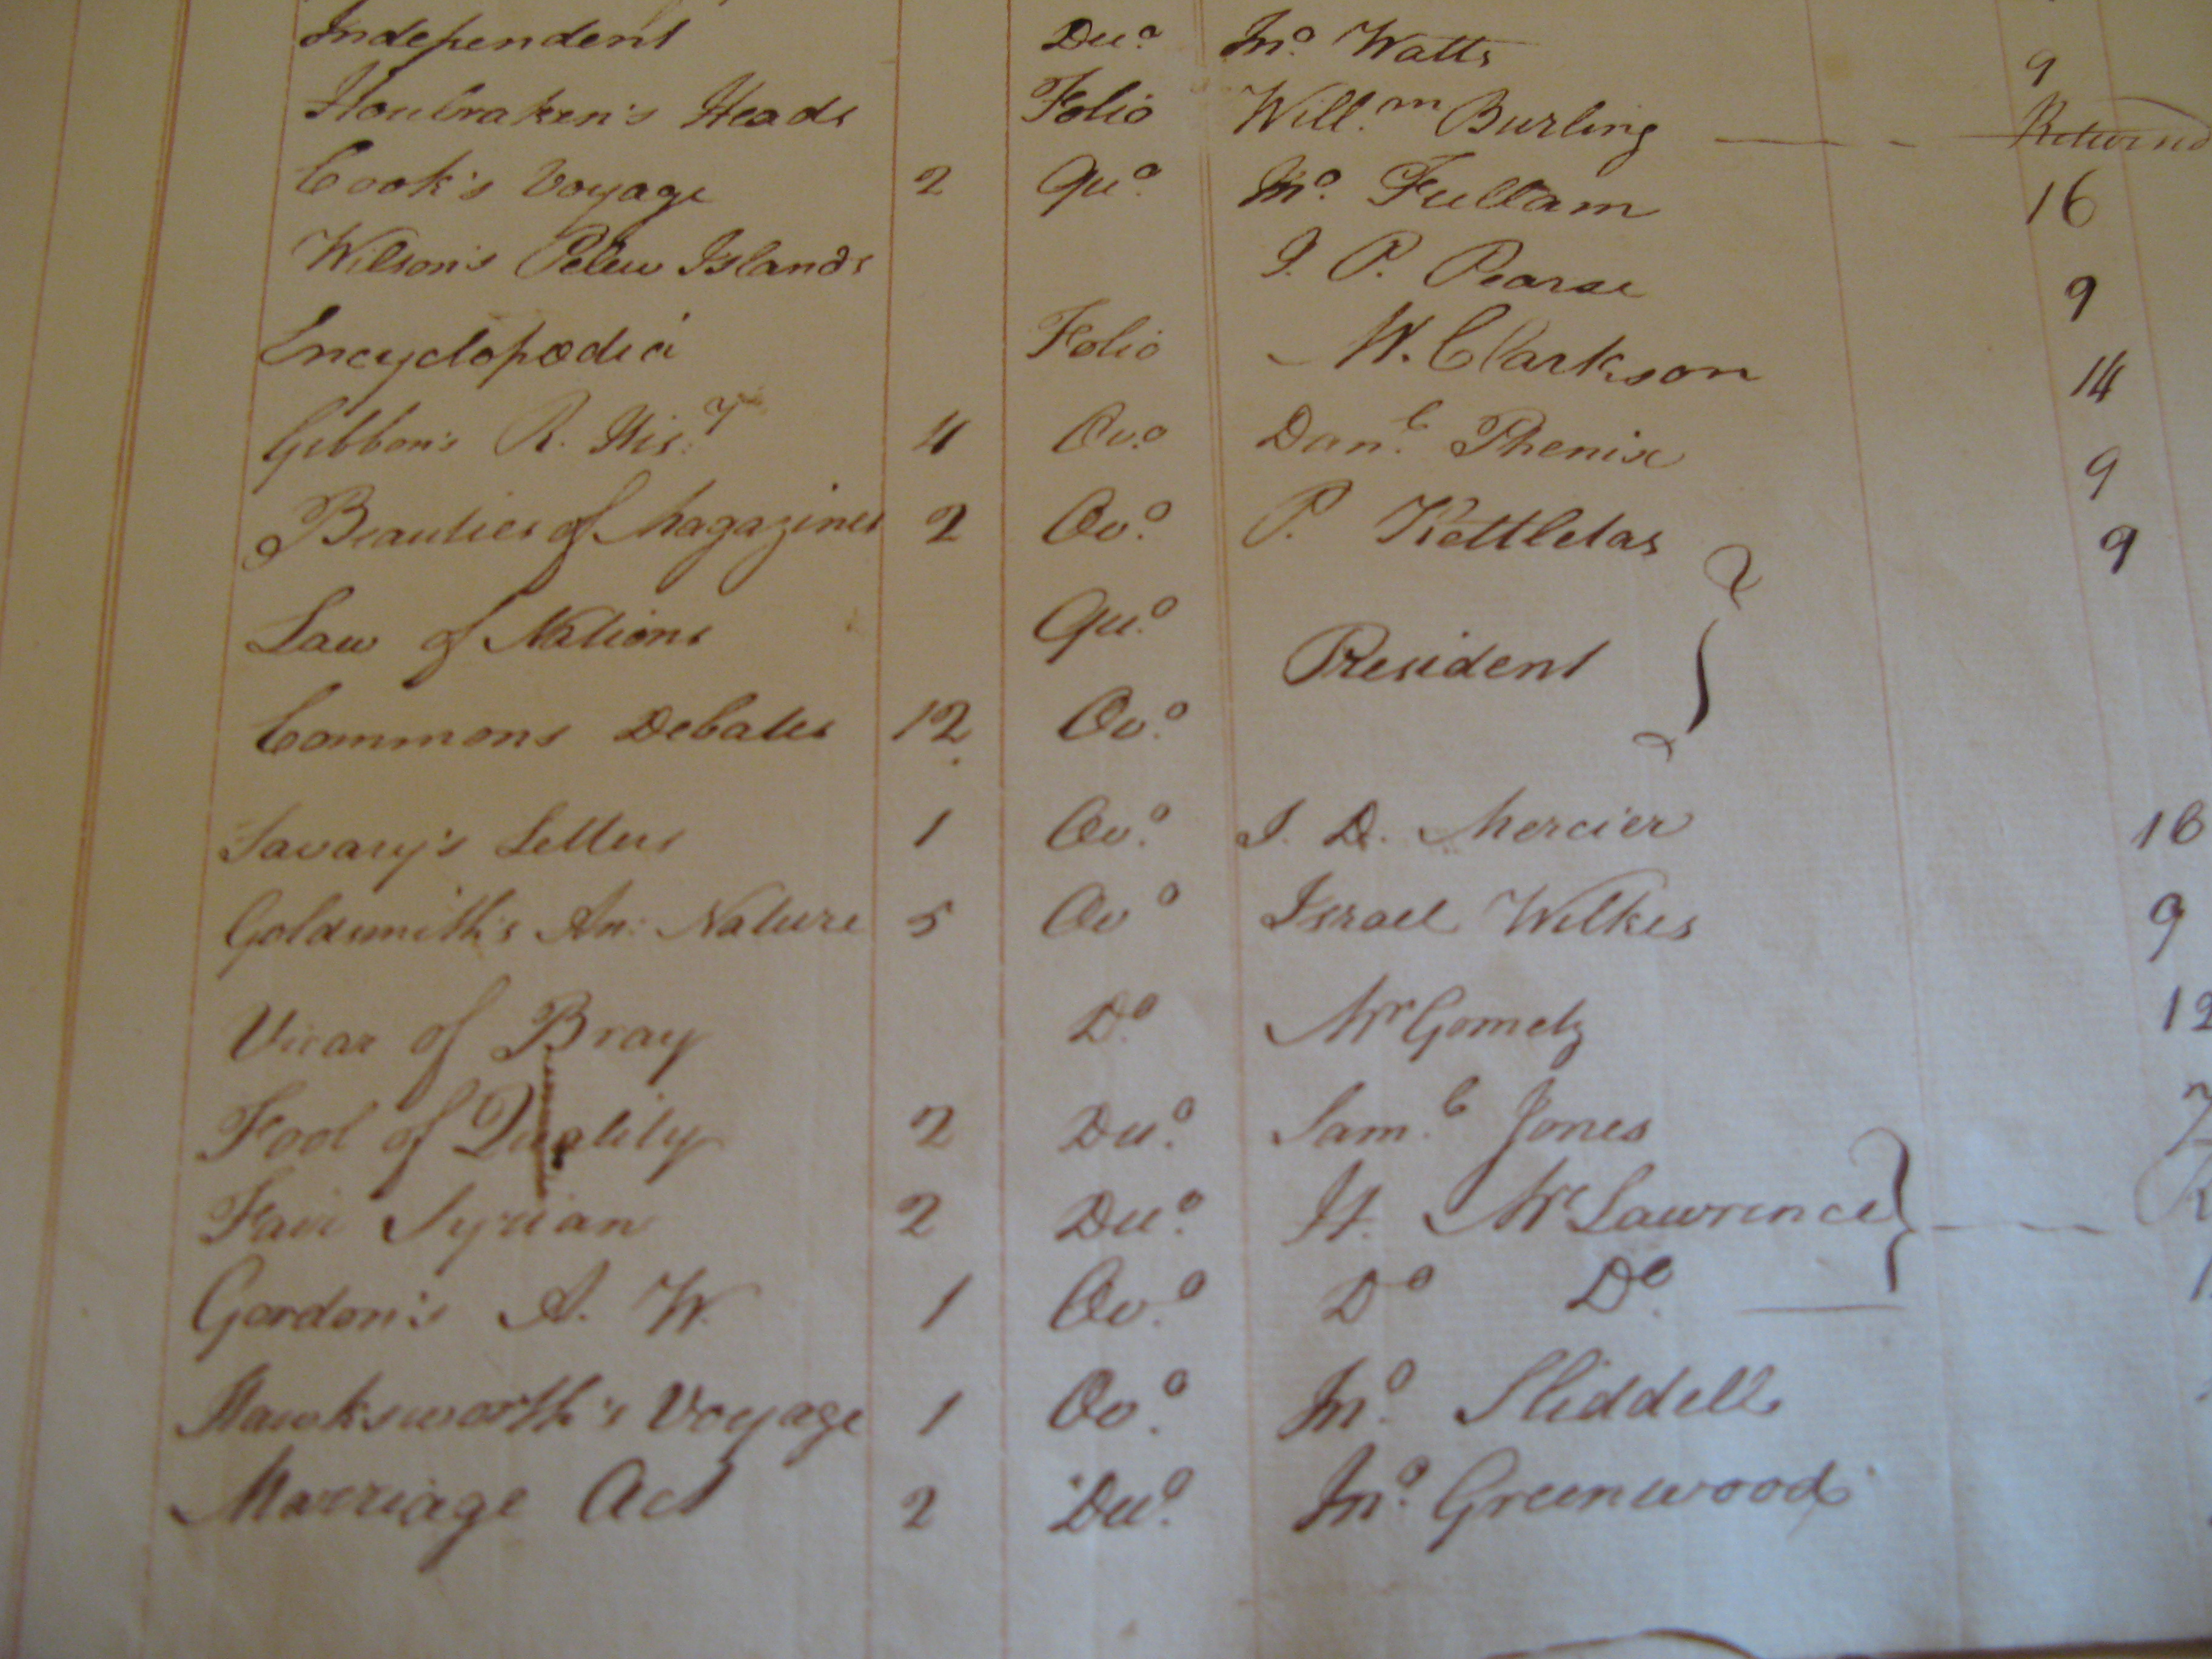 Independent Duo. Jno. Watts 9
Houbraken's Heads Folio Will.m Burling Returnd
Cook's Voyage 2 Quo. Jno. Fullam 16
Wilson's Pelew Islands J. P. Pearse 9
Encyclopædia Folio W. Clarkson 14
Gibbon's R. His:y 4 Ovo. Dan.l Phenix 9
Beauties of Magazines 2 Ovo. P. Kettletas 9
Law of Nations Quo. President }
Commons Debates 12 Ovo.
Savary's Letters 1 Ovo. J. D. Mercier 16
Goldsmith's An: Nature 5 Ovo Israel Wilkes 9
Vicar of Bray Do. Mr Gometz 12
Fool of Quality 2 Duo. Sam.l Jones 7
Fair Syrian 2 Duo. Jt. McLawrence }
Gordon's A. W. 1 Ovo. Do Do.
Hawksworth's Voyage 1 Ovo. Jno. Sliddell
Marriage Act 2 Duo. Jno. Greenwood